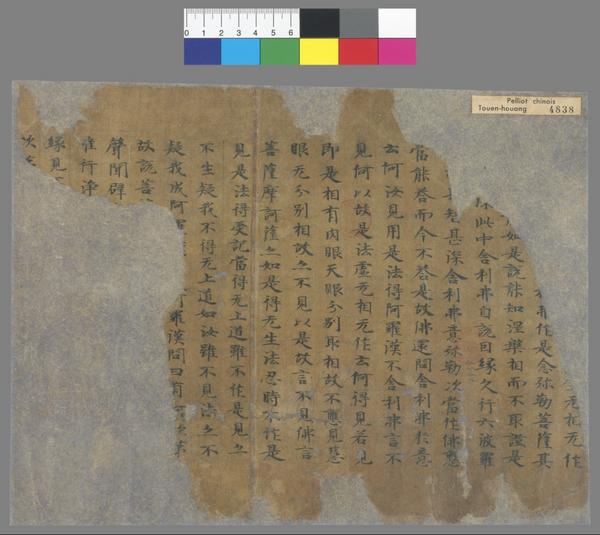 Pelliot chinois
Touen-houang 4838
0 1 2 3 4 5 6
无相无作
弗作是念弥勒菩薩其
如是說能知涅槃相而不取證是
此中舍利弗自說因緣久行六波羅
甚深舍利弗意弥勒次當作佛應
當能荅而今不荅是故佛還問舍利弗於意
云何汝見用是法得阿羅漢不舍利弗言不
見何以故是法虛无相无作云何得見若見
即是相有肉眼天眼分別取相故不應見慧
眼无分別相故亦不見以是故言不見佛言
菩薩摩訶薩亦如是得无生法忍時不作是
見是法得受記當得无上道雖不作是見亦
不生疑我不得无上道如汝雖不見法亦不
疑我成阿羅 阿羅漢問曰有 第
故說菩
聲聞辟
行淨
緣見
次